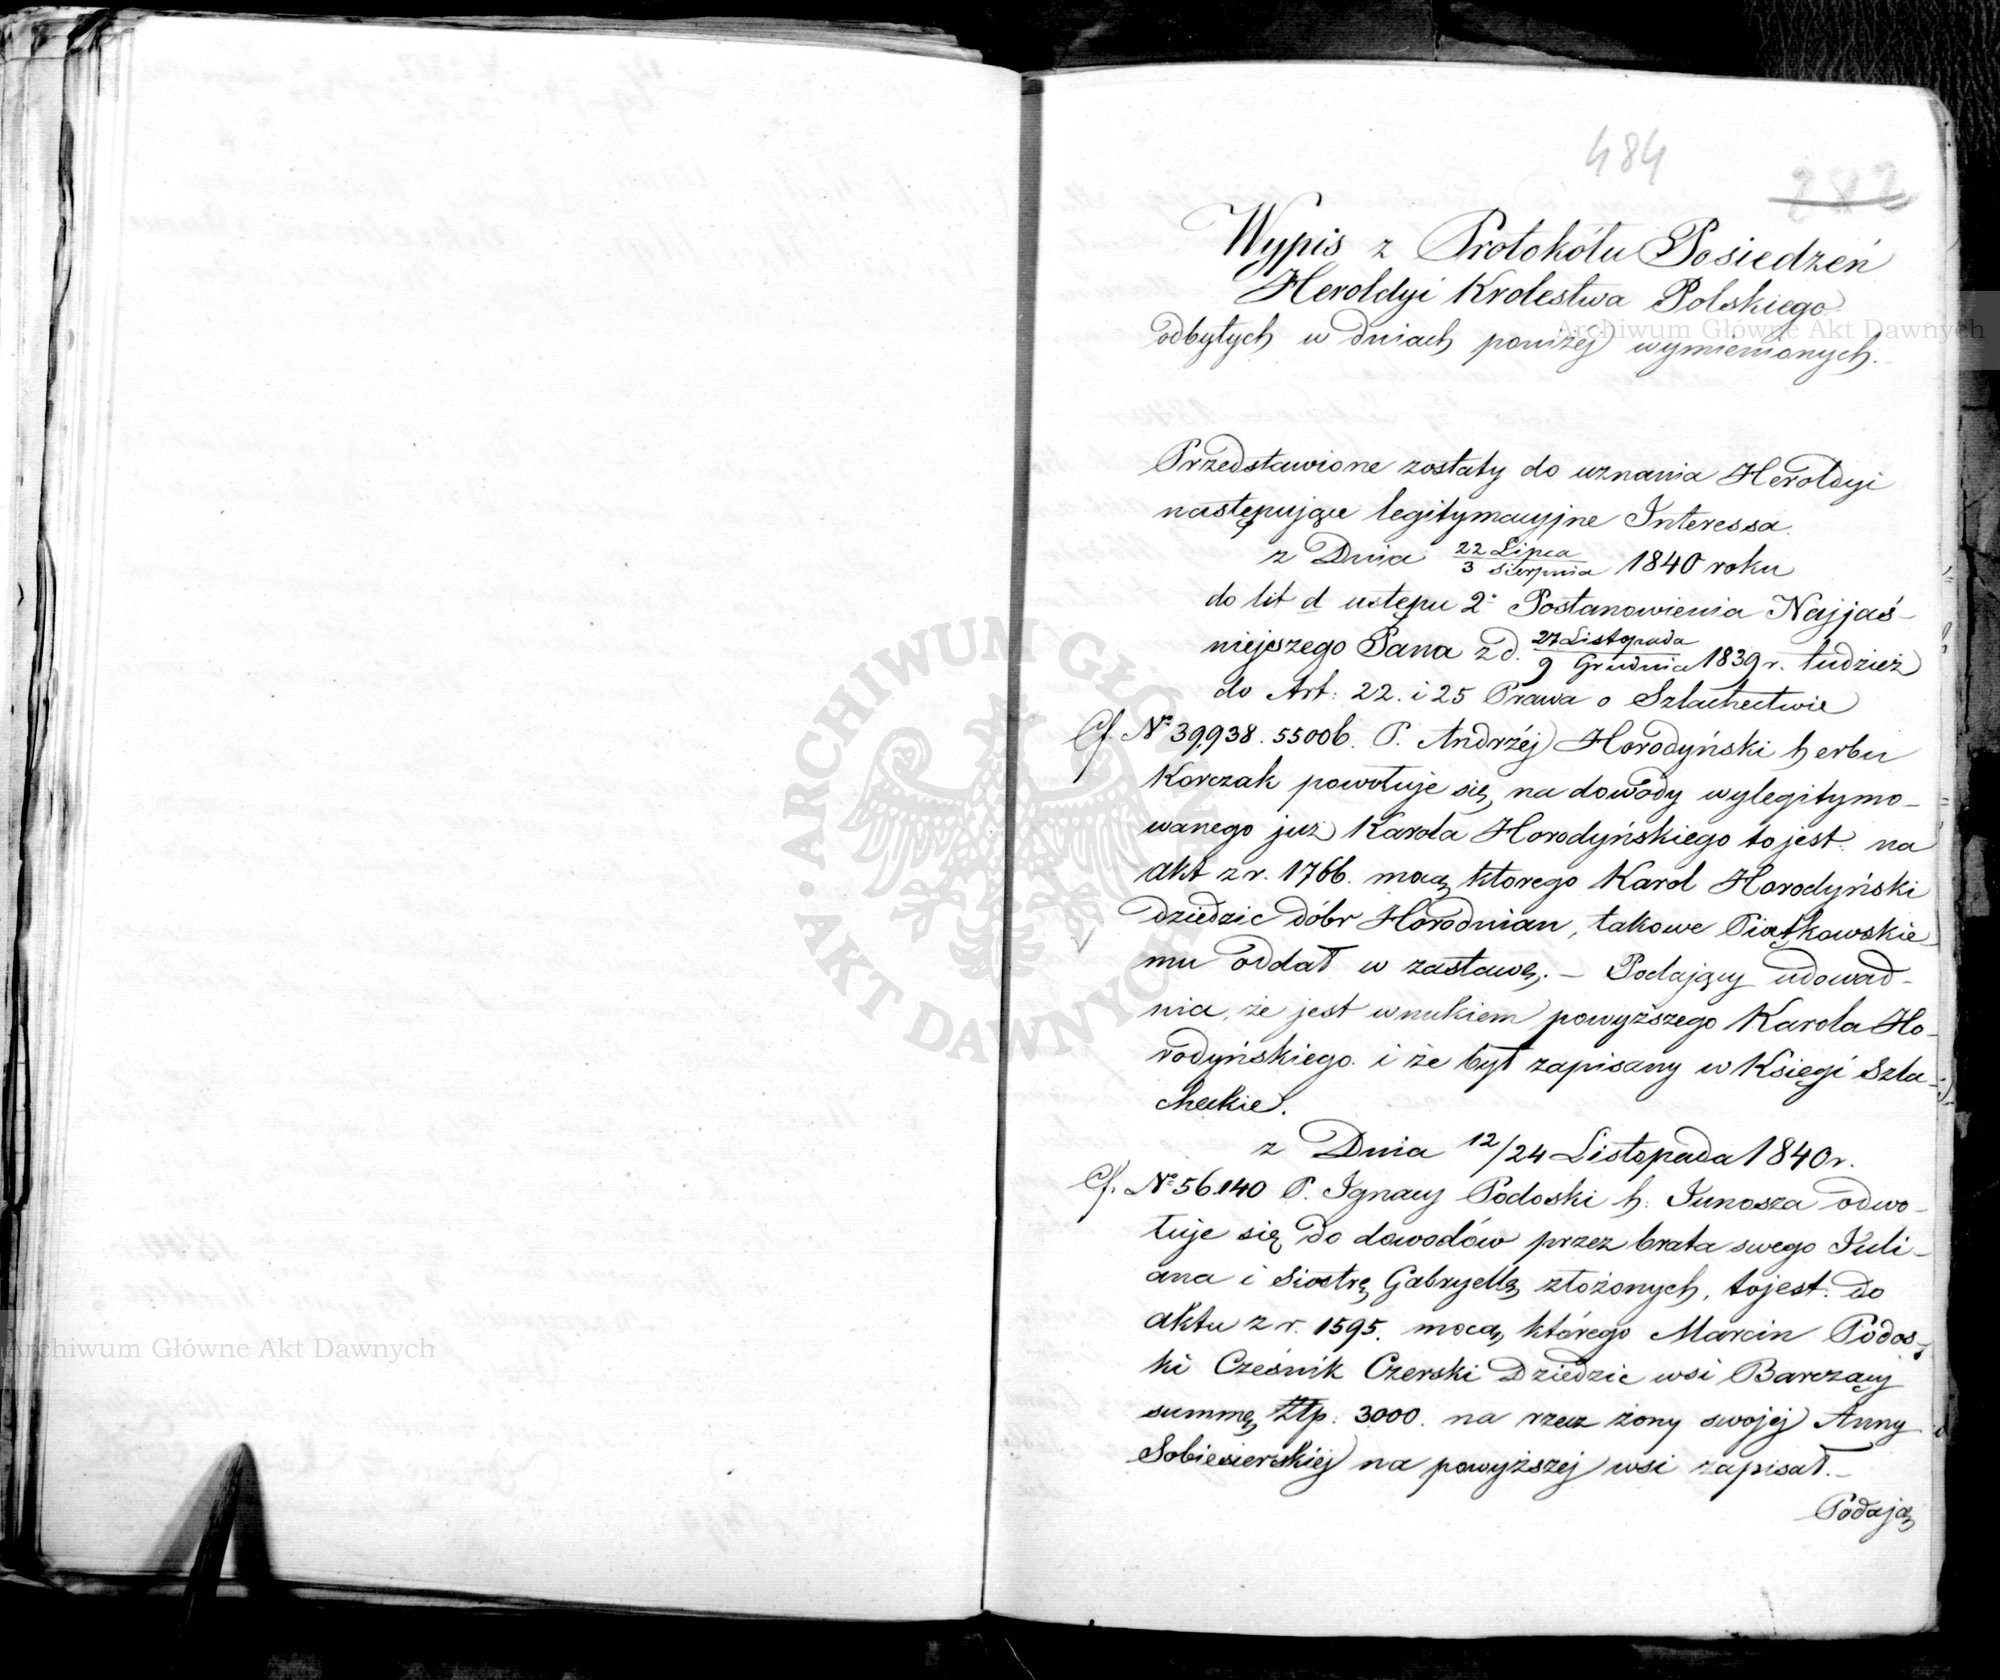 484
282
Wypis z Protokółu Posiedzeń
Heroldyi Krolestwa Polskiego
odbytych w dniach poniżej wymienionych.
Przedstawione zostały do uznania Heroldyi
następujące legitymacyjne Interessa.
z Dnia 22 Lipca / 3 Sierpnia 1840 roku
do lit d ustępu 2º Postanowienia Najjaś-
niejszego Pana z d. 27 Listopada / 9 Grudnia 1839 r. tudzież
do Art: 22. i 25 Prawa o Szlachectwie
Cf. Nº 39,938. 55006. P. Andrzéj Horodyński herbu
Korczak powołuje się na dowody wylegitymo-
wanego już Karola Horodyńskiego to jest: na
akt z r. 1766. mocą ktorego Karol Horodyński
dziedzic dóbr Horodnian, takowe Piątkowskie-
mu oddał w zastawę. – Podający udowad-
nia, że jest wnukiem powyższego Karola Ho-
rodyńskiego. i że był zapisany w Księgi Szla-
checkie.
z Dnia 12/24 Listopada 1840 r.
Cf. Nº 56.140 P. Ignacy Podoski h: Junosza odwo-
łuje się do dowodów przez brata swego Juli-
ana i Siostrę Gabryellę złożonych, tojest: do
aktu z r. 1595. mocą którego Marcin Podos-
ki Cześnik Czerski Dziedzic wsi Barczący
summę Złp: 3000. na rzecz żony swojéj Anny
Sobiesierskiéj na powyższej wsi zapisał. –
Podają
Archiwum Główne Akt Dawnych
ARCHIWUM GŁÓWNE AKT DAWNYCH
Archiwum Główne Akt Dawnych